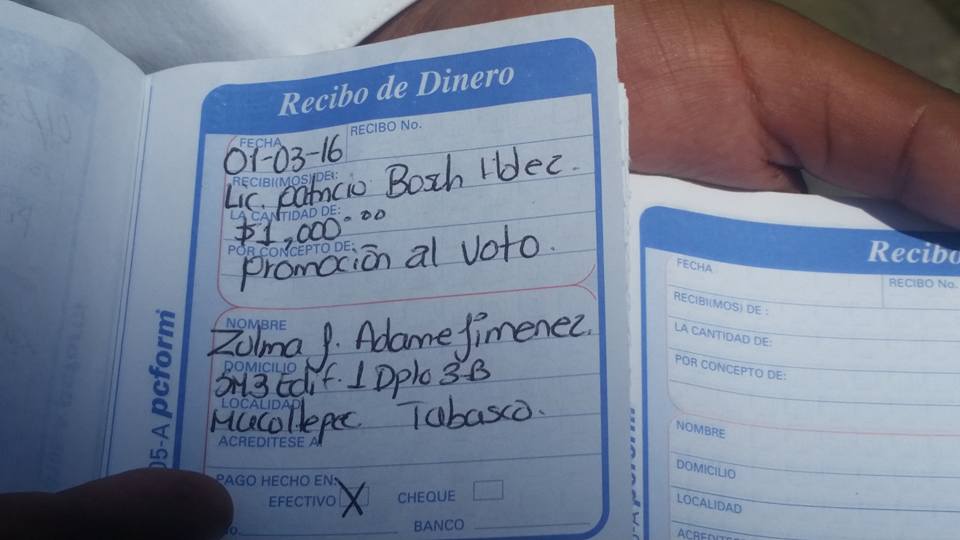 Recibo de Dinero
FECHA
RECIBO No.
01-03-16
RECIBI(MOS) DE:
Lic. Patricio Bosch Hdez.
LA CANTIDAD DE:
$1,000.00
POR CONCEPTO DE:
promoción al voto.
NOMBRE
Zulma J. Adame Jimenez.
DOMICILIO
Edif. 1 Dpto 3-B
LOCALIDAD
Macultepec. Tabasco.
ACREDITESE A
PAGO HECHO EN:
EFECTIVO X CHEQUE
BANCO
05-A pcform
Recibo
FECHA
RECIBO No.
RECIBI(MOS) DE :
LA CANTIDAD DE:
POR CONCEPTO DE:
NOMBRE
DOMICILIO
LOCALIDAD
ACREDITESE